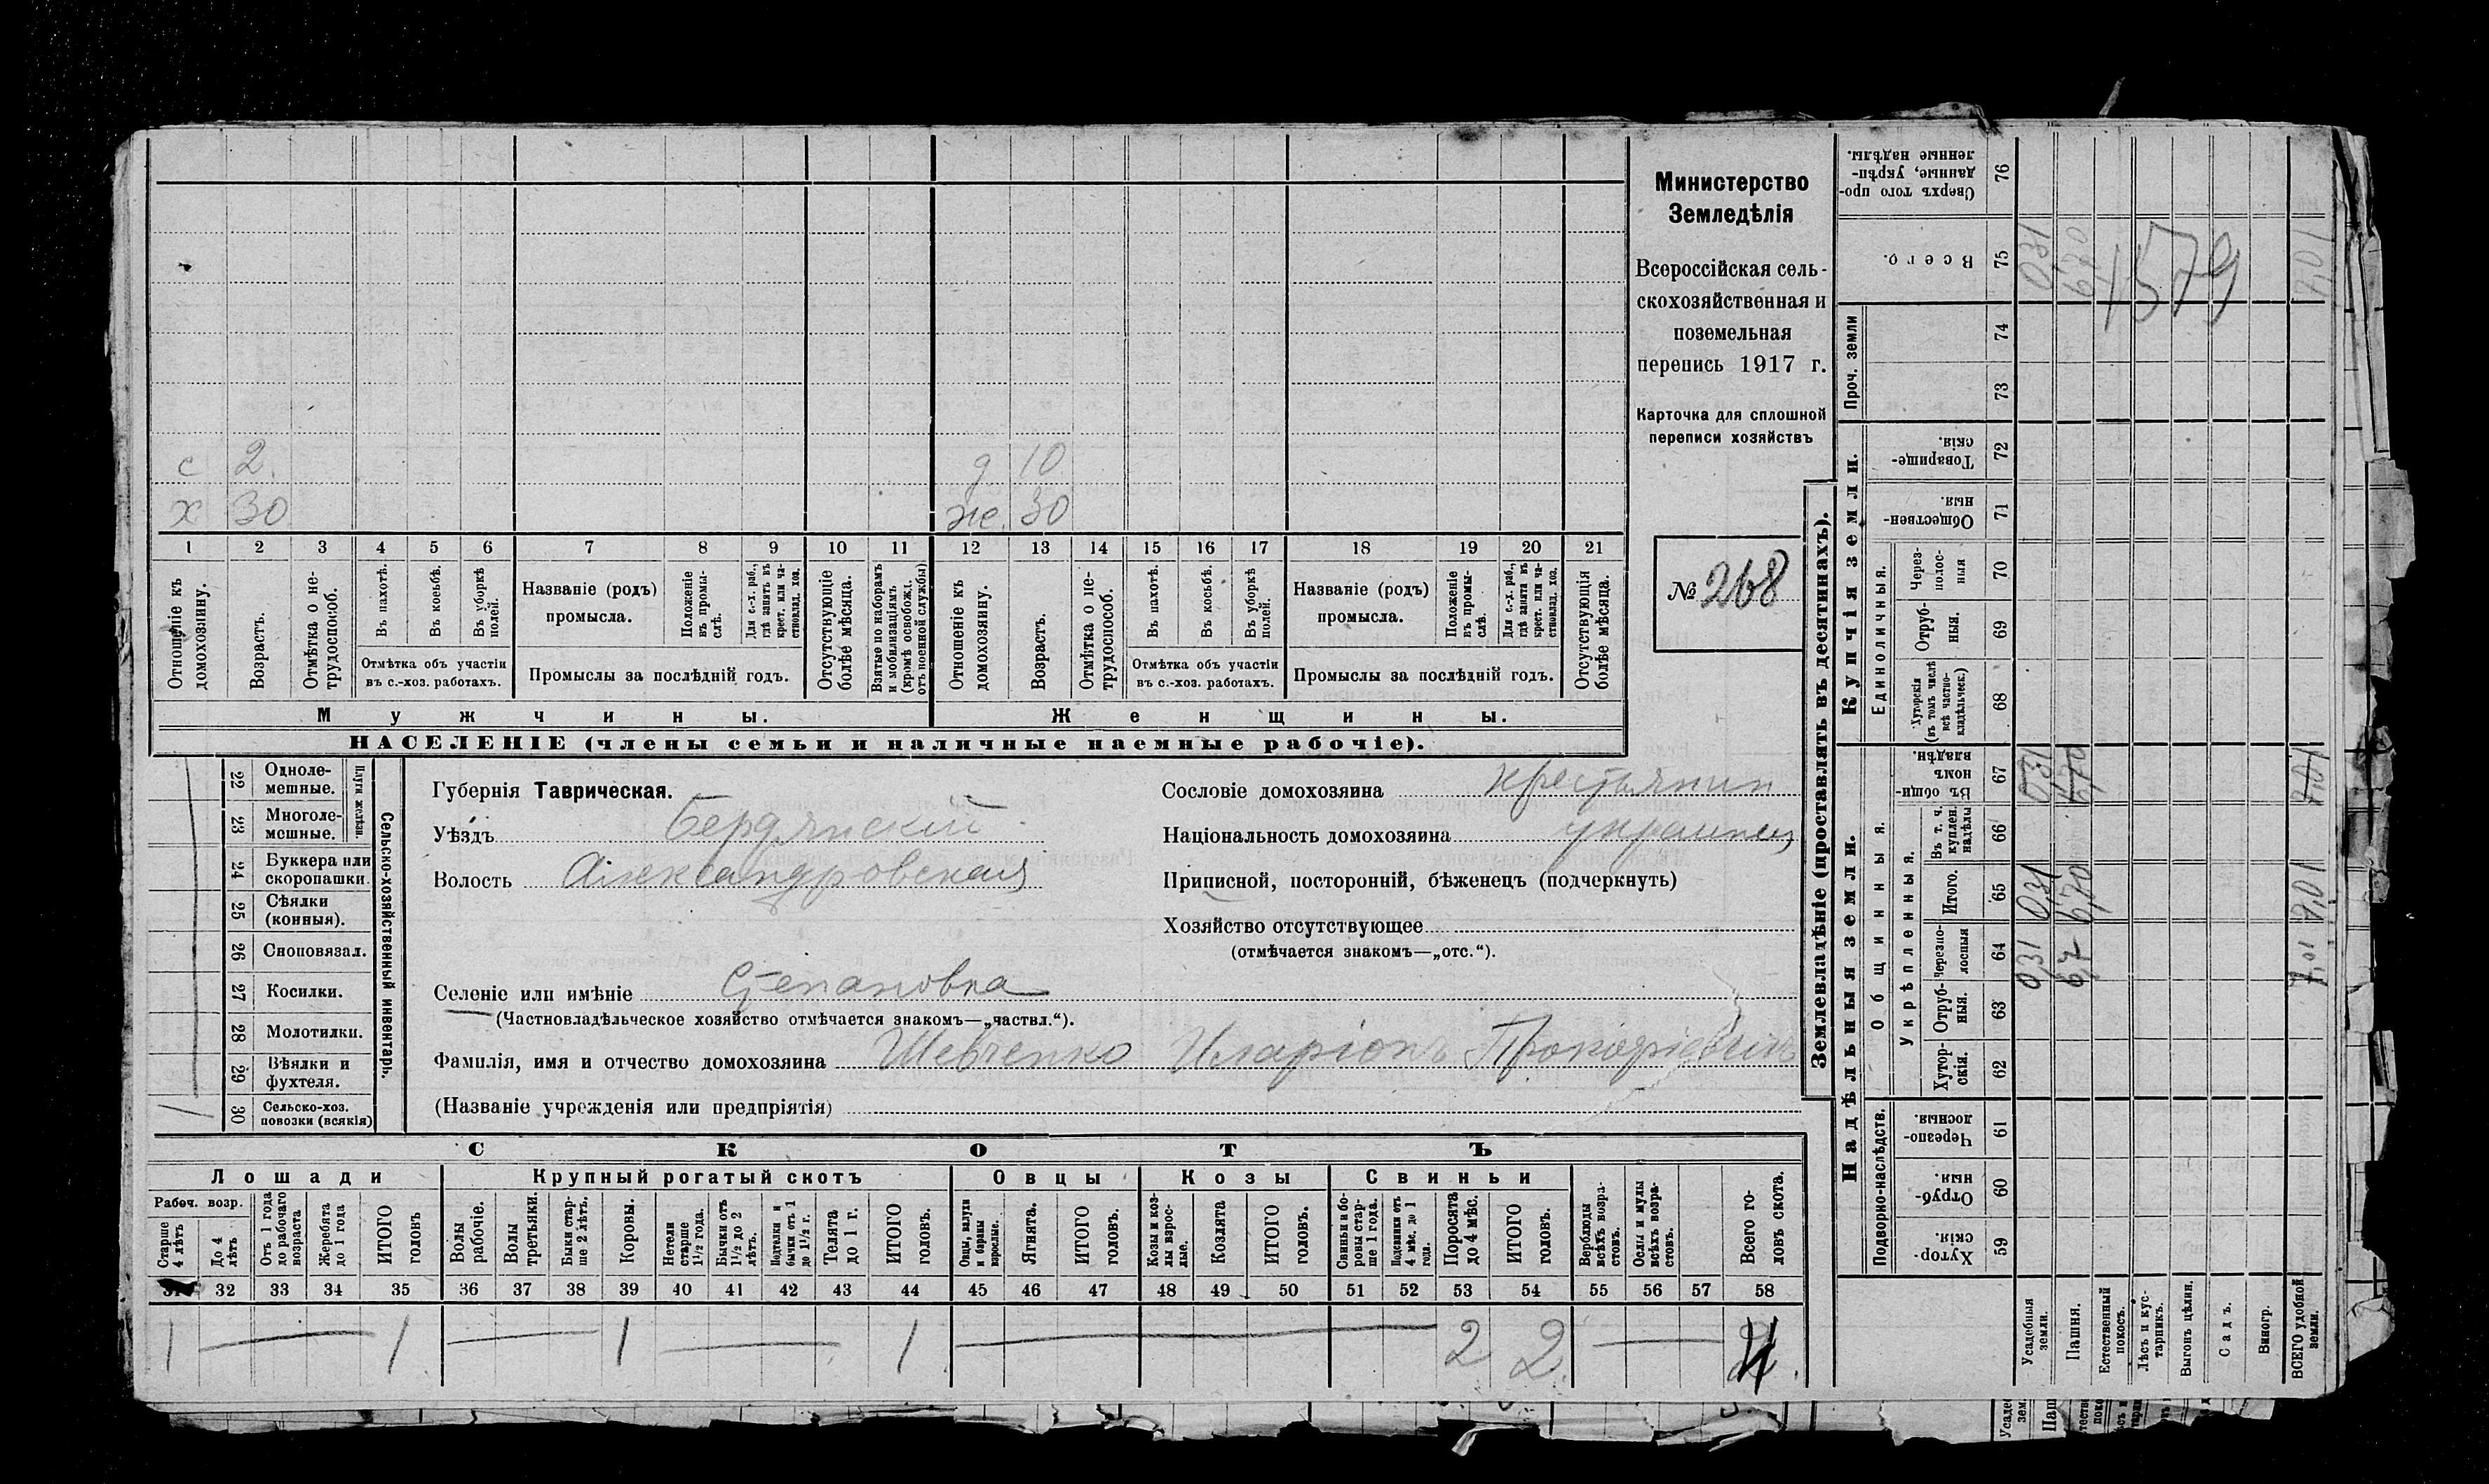 Министерство
Земледѣлія
Всероссійская сель-
скохозяйственная и
поземельная
перепись 1917 г.
Карточка для сплошной
переписи хозяйствъ
№ 268
с 2. д 10
х 30 же. 30
1 2 3 4 5 6 7 8 9 10 11 12 13 14 15 16 17 18 19 20 21
Отношеніе къ домохозяину.
Возрастъ.
Отмѣтка о не-трудоспособ.
Въ пахотѣ.
Въ косьбѣ.
Въ уборкѣ полей.
Отмѣтка объ участіи
въ с.-хоз. работахъ.
Названіе (родъ)
промысла.
Положеніе въ промы-слѣ.
Для с.-х. раб., гдѣ занятъ въ крест. или ча-стновлад. хоз.
Промыслы за послѣдній годъ.
Отсутствующіе болѣе мѣсяца.
Взятые по наборамъ и мобилизаціямъ (кромѣ освобожд. отъ военной службы)
Отношеніе къ домохозяину.
Возрастъ.
Отмѣтка о не-трудоспособ.
Въ пахотѣ.
Въ косьбѣ.
Въ уборкѣ полей.
Отмѣтка объ участіи
въ с.-хоз. работахъ.
Названіе (родъ)
промысла.
Положеніе въ промы-слѣ.
Для с.-х. раб., гдѣ занята въ крест. или ча-стновлад. хоз.
Промыслы за послѣдній годъ.
Отсутствующія болѣе мѣсяца.
Мужчины. Женщины.
НАСЕЛЕНІЕ (члены семьи и наличные наемные рабочіе).
Сельско-хозяйственный инвентарь.
Плуги желѣзн.
22 Одноле-мешные.
23 Многоле-мешные.
24 Буккера или скоропашки.
25 Сѣялки (конныя).
26 Сноповязал.
27 Косилки.
28 Молотилки.
29 Вѣялки и фухтеля.
30 Сельско-хоз. повозки (всякія) 1
Губернія Таврическая.
Уѣздъ Бердянскій
Волость Александровская
Селеніе или имѣніе Степановка
(Частновладѣльческое хозяйство отмѣчается знакомъ—„частвл.“).
Фамилія, имя и отчество домохозяина Шевченко Иларіонъ Прокофіевичъ
(Названіе учрежденія или предпріятія)
Сословіе домохозяина крестьянин
Національность домохозяина украинец
Приписной, посторонній, бѣженецъ (подчеркнуть)
Хозяйство отсутствующее
(отмѣчается знакомъ—„отс.“).
СКОТЪ
Лошади Крупный рогатый скотъ Овцы Козы Свиньи
Рабоч. возр.
Старше 4 лѣтъ
До 4 лѣтъ
Отъ 1 года до рабочаго возраста
Жеребята до 1 года
ИТОГО головъ
Волы рабочіе.
Волы третьяки.
Быки стар-ше 2 лѣтъ.
Коровы.
Нетели старше 1½ года.
Бычки отъ 1½ до 2 лѣтъ.
Подтелки и бычки отъ 1 до 1½ г.
Телята до 1 г.
ИТОГО головъ.
Овцы, валухи и бараны взрослые.
Ягнята.
ИТОГО головъ.
Козы и коз-лы взрос-лые.
Козлята
ИТОГО головъ.
Свиньи и бо-ровы стар-ше 1 года.
Подсвинки отъ 4 мѣс. до 1 года.
Поросята до 4 мѣс.
ИТОГО головъ.
Верблюды всѣхъ возра-стовъ.
Ослы и мулы всѣхъ возра-стовъ.
Всего го-ловъ скота.
31 32 33 34 35 36 37 38 39 40 41 42 43 44 45 46 47 48 49 50 51 52 53 54 55 56 57 58
1 — 1 — 1 — 1 — 2 2 — 4
Землевладѣніе (проставлять въ десятинахъ).
Надѣльныя земли. Купчія земли.
Подворно-наслѣдств.
Общинныя.
Укрѣпленныя.
Единоличныя.
Проч. земли
Хутор-скія. 59
Отруб-ныя. 60
Черезпо-лосныя 61
Хутор-скія. 62
Отруб-ныя. 63
Черезпо-лосныя 64 0,31 6,7 7,01
Итого. 65 0,31 6,70 7,01
Въ т. ч. куплен. надѣлы 66
Въ общи-номъ владѣн. 67 0,31 6,70 7,01
Хуторскія (въ томъ числѣ всѣ частно-владѣльческ.) 68
Отруб-ныя. 69
Через-полос-ныя 70
Обществен-ныя 71
Товарище-скія. 72
73
74
Всего. 75 0,31 6,70 7,01
1579
Сверхъ того про-данные, укрѣп-ленные надѣлы. 76
Усадебныя земли.
Пашня.
Естественный покосъ.
Лѣсъ и кус-тарникъ.
Выгонъ цѣлин.
Садъ.
Виногр.
ВСЕГО удобной земли.